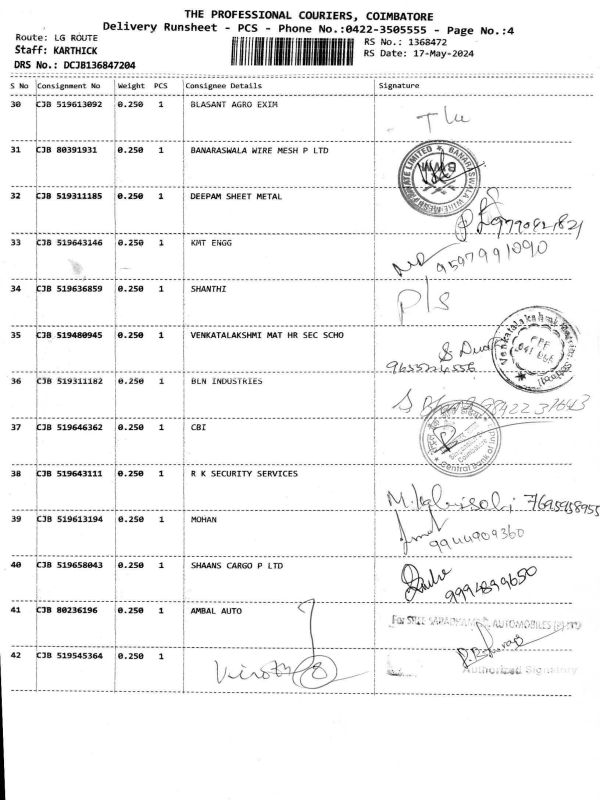 THE PROFESSIONAL COURIERS, COIMBATORE
Delivery Runsheet - PCS - Phone No.:0422-3505555 - Page No.:4
Route: LG ROUTE
Staff: KARTHICK
DRS No.: DCJB136847204
RS No.: 1368472
RS Date: 17-May-2024
S No Consignment No Weight PCS Consignee Details Signature
30 CJB 519613092 0.250 1 BLASANT AGRO EXIM
31 CJB 80391931 0.250 1 BANARASWALA WIRE MESH P LTD
32 CJB 519311185 0.250 1 DEEPAM SHEET METAL
33 CJB 519643146 0.250 1 KMT ENGG
9597991090
34 CJB 519636859 0.250 1 SHANTHI
P/s
35 CJB 519480945 0.250 1 VENKATALAKSHMI MAT HR SEC SCHO
36 CJB 519311182 0.250 1 BLN INDUSTRIES
37 CJB 519646362 0.250 1 CBI
Central Bank of India
Coimbatore
38 CJB 519643111 0.250 1 R K SECURITY SERVICES
39 CJB 519613194 0.250 1 MOHAN
9944909360
40 CJB 519658043 0.250 1 SHAANS CARGO P LTD
9994899650
41 CJB 80236196 0.250 1 AMBAL AUTO
AUTOMOBILES (P) LTD
42 CJB 519545364 0.250 1
Authorized Signatory